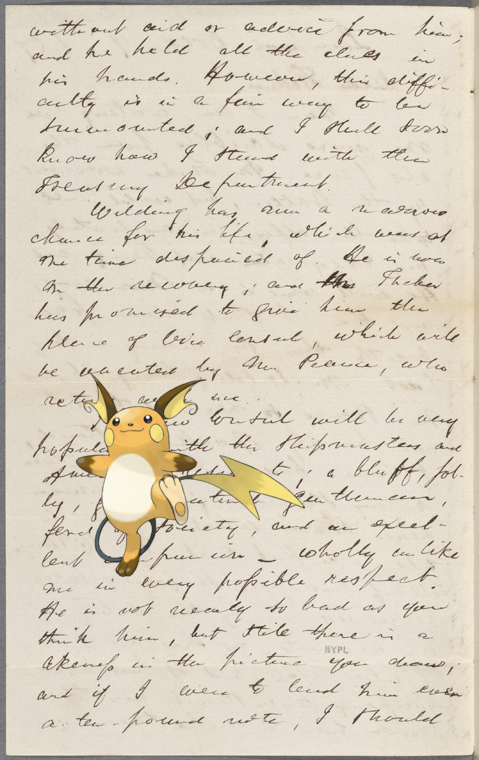 without aid or advice from him;
and he held all the clues in
his hands. However, this diffi-
culty is in a fair way to be
surmounted; and I shall soon
know how I stand with the
Treasury Department.
Wilding has run a narrow
chance for his life, which was at
one time despaired of. He is now
on the recovery; and
has promised to give him the
place of Vice Consul, which will
be vacated by Mr Pearce, who
me.
Consul will be very
with the Shipmasters and
; a bluff, jol-
ly, gentleman,
society, and an excel-
lent wholly unlike
me in every possible respect.
He is not nearly so bad as you
think him, but still there is a
likeness in the picture you draw;
and if I were to lend him even
a ten-pound note, I should
NYPL